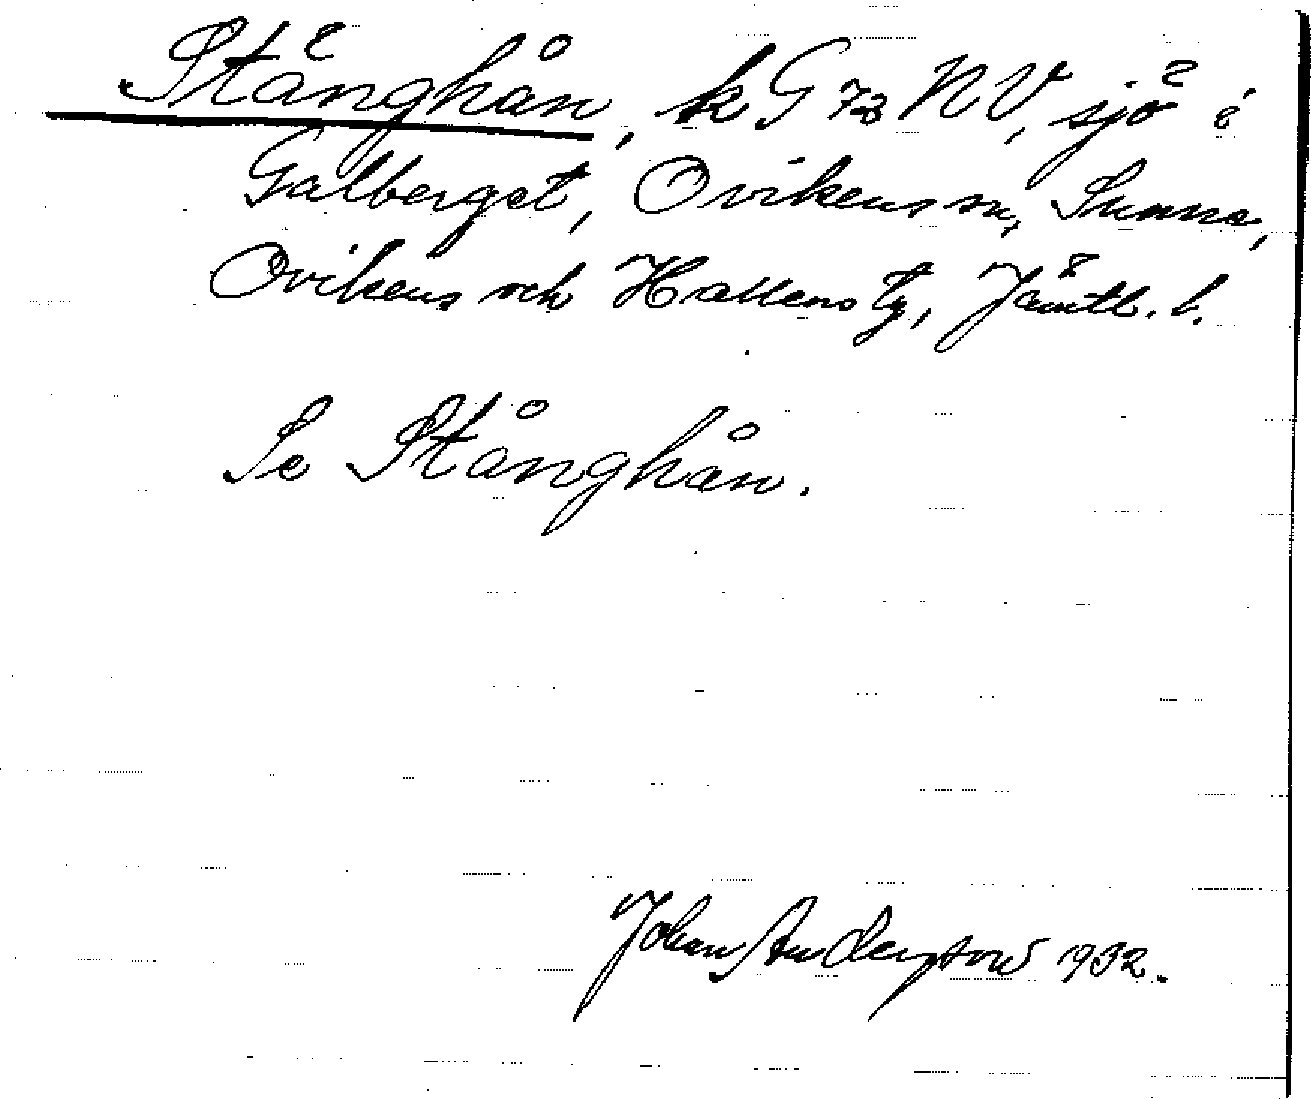 Stänghån, k G 73 NV, sjö i
Galberget, Ovikens sn, Sunne,
Ovikens och Hallens tg, Jämtl. l.
Se Stånghån.
Johan Anderson 1932.